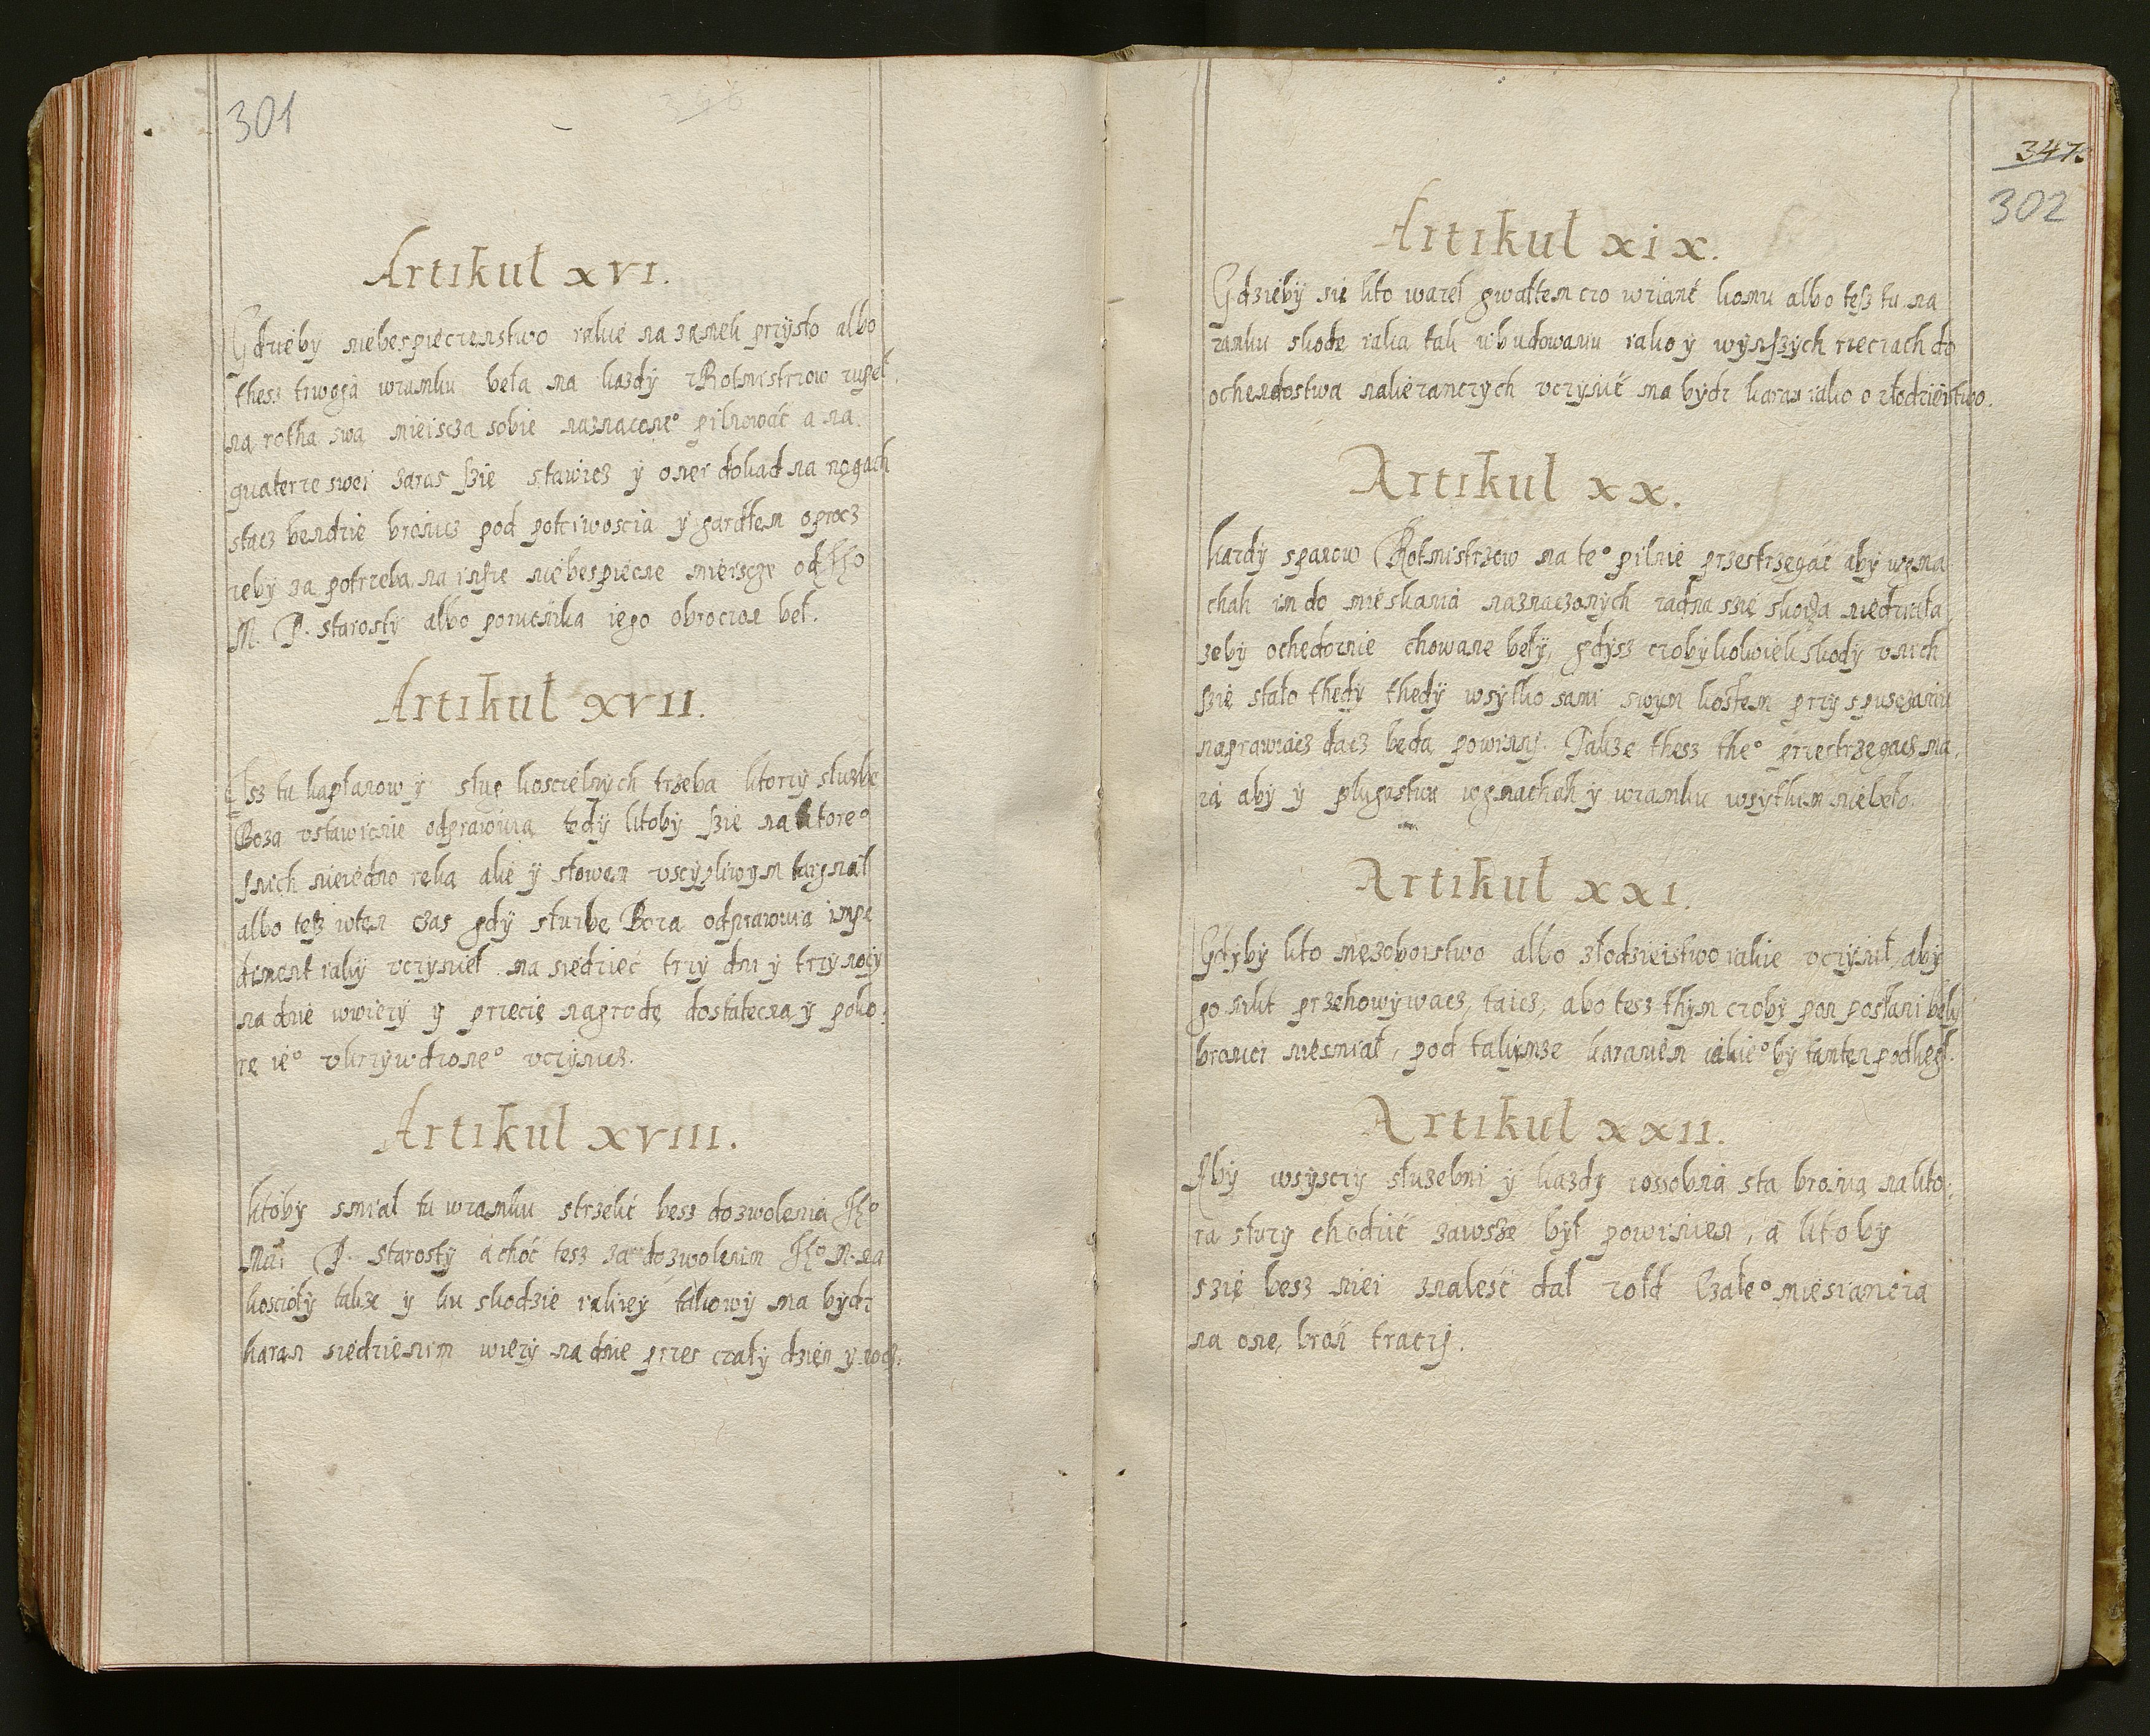 301
Artikuł XVI.
Gdzieby niebespieczenstwo iakie na zamek przysło albo
thesz trwoga wzamku beła ma kazdy z Rotmistrzow zupeł
na rotha swa mieiscza sobie naznacone° pilnowac a na
quaterze swei zaras szie stawicz y onei dokad na nogach
stacz bendzie bronicz pod poczciwoscia y gardłem oprocz
zeby za potrzeba na insze niebespiecne mieiscze od Jho
M. P. starosty albo porucnika iego obrocion beł.
Artikuł XVII.
Isz tu kapłanow y sług koscielnych trzeba ktorzy służbe
Boza vstawicnie odprawuia tedy ktoby szie na ktore°
snich nieiedno reka ale y słowem vscypliwym targnał
albo tesz wten czas gdy służbe Boza odprawuia impe
diment iaky vczynieł ma siedziec trzy dni y trzy nocy
na dnie wwiezy y przecie nagrode dostatecna y poko:
re ie° vkrzywdzone° vczynicz.
Artikuł XVIII.
Ktoby smiał tu wzamku strzelic besz dozwolenia Jh°
M: P. starosty a choc tesz za dozwolenim Jh° M. na
koscioły takze y ku skodzie iakiey takowy ma bydz
karan siedzienim wiezy na dnie przes czały dzien y nocz.
347.
302
Artikuł XIX.
Gdzieby sie kto wazeł gwałtem czo wziąnć komu albo tesz tu na
zamku skode iaka tak wbudowaniu iako y wynszych rzeczach do
ochendostwa nalezanczych vczynić ma bydz karan iako o złodzieistwo.
Artikuł XX.
Kazdy spanow Rotmistrzow ma te° pilnie przestrzegac aby wgma
chah im do mieskania naznaczonych zadna szie skoda niedziała
zeby ochedoznie chowane beły, gdysz czobykolwiek skody vnich
szie stało thedy thedy wsytko sami swym kostem przy spusczaniu
naprawiacz dacz beda powinni. Takze thesz the° przestrzegacz ma,
ia aby y plugastwa wgmachah y wzamku wsytkim niebeło.
Artikuł XXI.
Gdyby kto mezoboistwo albo złodzieistwo iakie vczynił, aby
go nikt przehowywacz, taicz, abo tesz thym czoby pon posłani beły
bronicz niesmiał, pod takimze karaniem iakie° by tamten podległ.
Artikuł XXII.
Aby wsysczy słuzebni y kazdy zossobna sta bronia na kto:
ra słuzy chodzić zawsze był powinien, a ktoby
szie besz niei znalesć dał zołd Czałe° miesiancza
na one bron traczj.